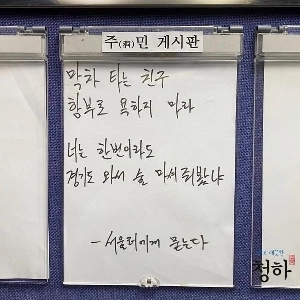 주(酒)민 게시판
막차 타는 친구
함부로 욕하지 마라
너는 한번이라도
경기도 와서 술 마셔줘봤냐
- 서울러에게 묻는다
청하